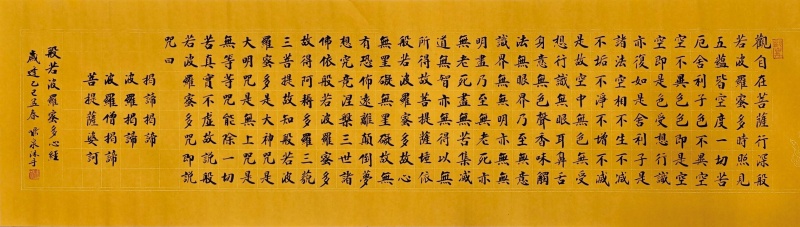 觀自在菩薩行深般
若波羅蜜多時照見
五蘊皆空度一切苦
厄舍利子色不異空
空不異色色即是空
空即是色受想行識
亦復如是舍利子是
諸法空相不生不滅
不垢不淨不增不減
是故空中無色無受
想行識無眼耳鼻舌
身意無色聲香味觸
法無眼界乃至無意
識界無無明亦無無
明盡乃至無老死亦
無老死盡無苦集滅
道無智亦無得以無
所得故菩提薩埵依
般若波羅蜜多故心
無罣礙無罣礙故無
有恐怖遠離顛倒夢
想究竟涅槃三世諸
佛依般若波羅蜜多
故得阿耨多羅三藐
三菩提故知般若波
羅蜜多是大神咒是
大明咒是無上咒是
無等等咒能除一切
苦真實不虛故說般
若波羅蜜多咒即說
咒曰
揭諦揭諦
波羅揭諦
波羅僧揭諦
菩提薩婆訶
般若波羅蜜多心經
歲逢乙巳春